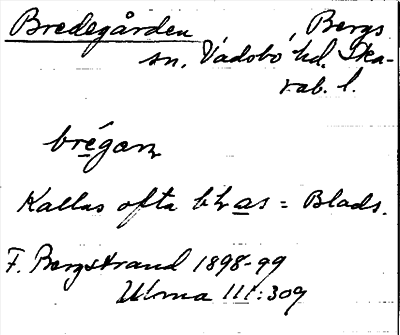 Bredegården, Bergs
sn. Vadsbo hd. Ska-
rab. l.
Kallas ofta = Blads.
F. Bergstrand 1898-99
III:309